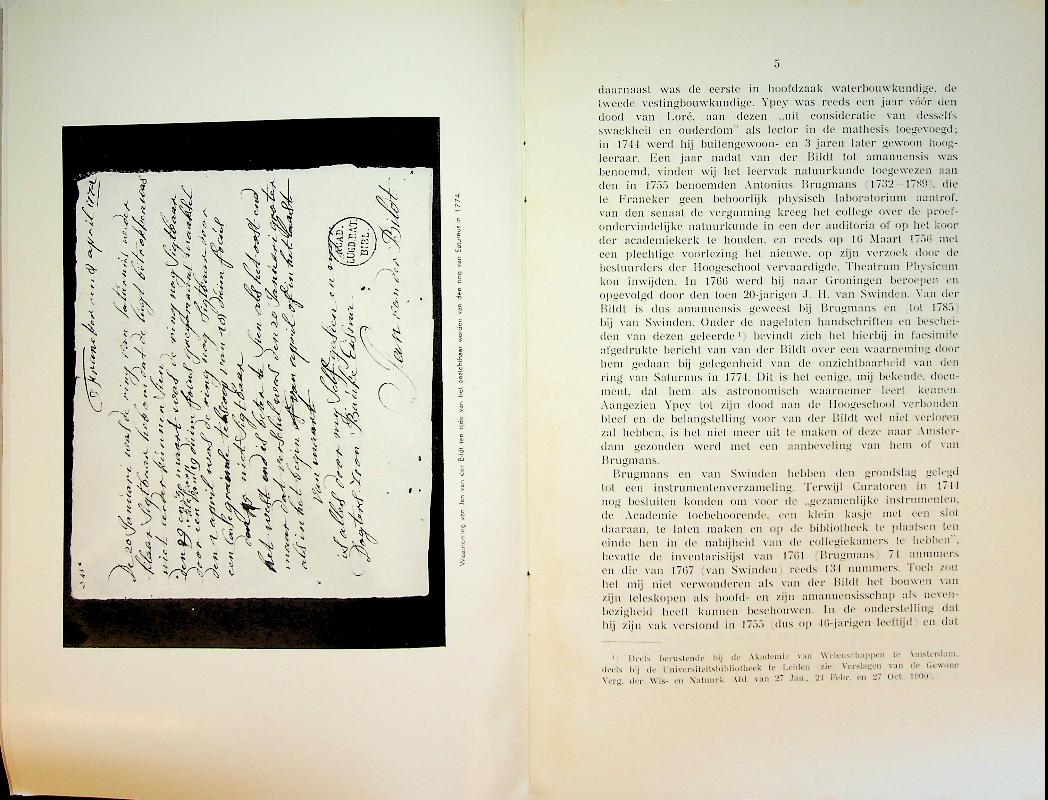 Franeker den 8 april 1774
De 20 Januari was de ring van saturnus
klaar sigtbaar
niet verder kunnen sien
den maart was de ring nog sigtbaar
door een
den 2 april was de ring nog sigtbaar door
een
niet sigtbaar
het west end is beter te sien als het oost end
maar dat probleem den 20 Januari groter
als in het begin van april of in het laast
van maart
is alles door my self gesien en
Dogters Soon Buiffe Eedsma
Jan van der Bildt
ACAD.
LUGD.BAT
BIBL.
Waarneming van Jan van der Bildt ten tijde van het onzichtbaar worden van den ring van Saturnus in 1774.
5
daarnaast was de eerste in hoofdzaak waterbouwkundige, de
tweede vestingbouwkundige. Ypey was reeds een jaar vóór den
dood van Loré, aan dezen „uit consideratie van desselfs
swackheit en ouderdom" als lector in de mathesis toegevoegd;
in 1744 werd hij buitengewoon- en 3 jaren later gewoon hoog-
leeraar. Een jaar nadat van der Bildt tot amanuensis was
benoemd, vinden wij het leervak natuurkunde toegewezen aan
den in 1755 benoemden Antonius Brugmans (1732—1789), die
te Franeker geen behoorlijk physisch laboratorium aantrof,
van den senaat de vergunning kreeg het college over de proef-
ondervindelijke natuurkunde in een der auditoria of op het koor
der academiekerk te houden, en reeds op 16 Maart 1756 met
een plechtige voorlezing het nieuwe, op zijn verzoek door de
bestuurders der Hoogeschool vervaardigde, Theatrum Physicum
kon inwijden. In 1766 werd hij naar Groningen beroepen en
opgevolgd door den toen 20-jarigen J. H. van Swinden. Van der
Bildt is dus amanuensis geweest bij Brugmans en (tot 1785)
bij van Swinden. Onder de nagelaten handschriften en beschei-
den van dezen geleerde ¹) bevindt zich het hierbij in facsimile
afgedrukte bericht van van der Bildt over een waarneming door
hem gedaan bij gelegenheid van de onzichtbaarheid van den
ring van Saturnus in 1774. Dit is het eenige, mij bekende, docu-
ment, dat hem als astronomisch waarnemer leert kennen.
Aangezien Ypey tot zijn dood aan de Hoogeschool verbonden
bleef en de belangstelling voor van der Bildt wel niet verloren
zal hebben, is het niet meer uit te maken of deze naar Amster-
dam gezonden werd met een aanbeveling van hem of van
Brugmans.
Brugmans en van Swinden hebben den grondslag gelegd
tot een instrumentenverzameling. Terwijl Curatoren in 1744
nog besluiten konden om voor de „gezamenlijke instrumenten,
de Academie toebehoorende, een klein kasje met een slot
daaraan, te laten maken en op de bibliotheek te plaatsen ten
einde hen in de nabijheid van de collegiekamers te hebben",
bevatte de inventarislijst van 1761 (Brugmans) 74 nummers
en die van 1767 (van Swinden) reeds 134 nummers. Toch zou
het mij niet verwonderen als van der Bildt het bouwen van
zijn teleskopen als hoofd- en zijn amanuensisschap als neven-
bezigheid heeft kunnen beschouwen. In de onderstelling dat
hij zijn vak verstond in 1755 (dus op 46-jarigen leeftijd) en dat
¹) Deels berustende bij de Akademie van Wetenschappen te Amsterdam,
deels bij de Universiteitsbibliotheek te Leiden (zie Verslagen van de Gewone
Verg. der Wis- en Natuurk. Afd. van 27 Jan., 24 Febr. en 27 Oct. 1900).